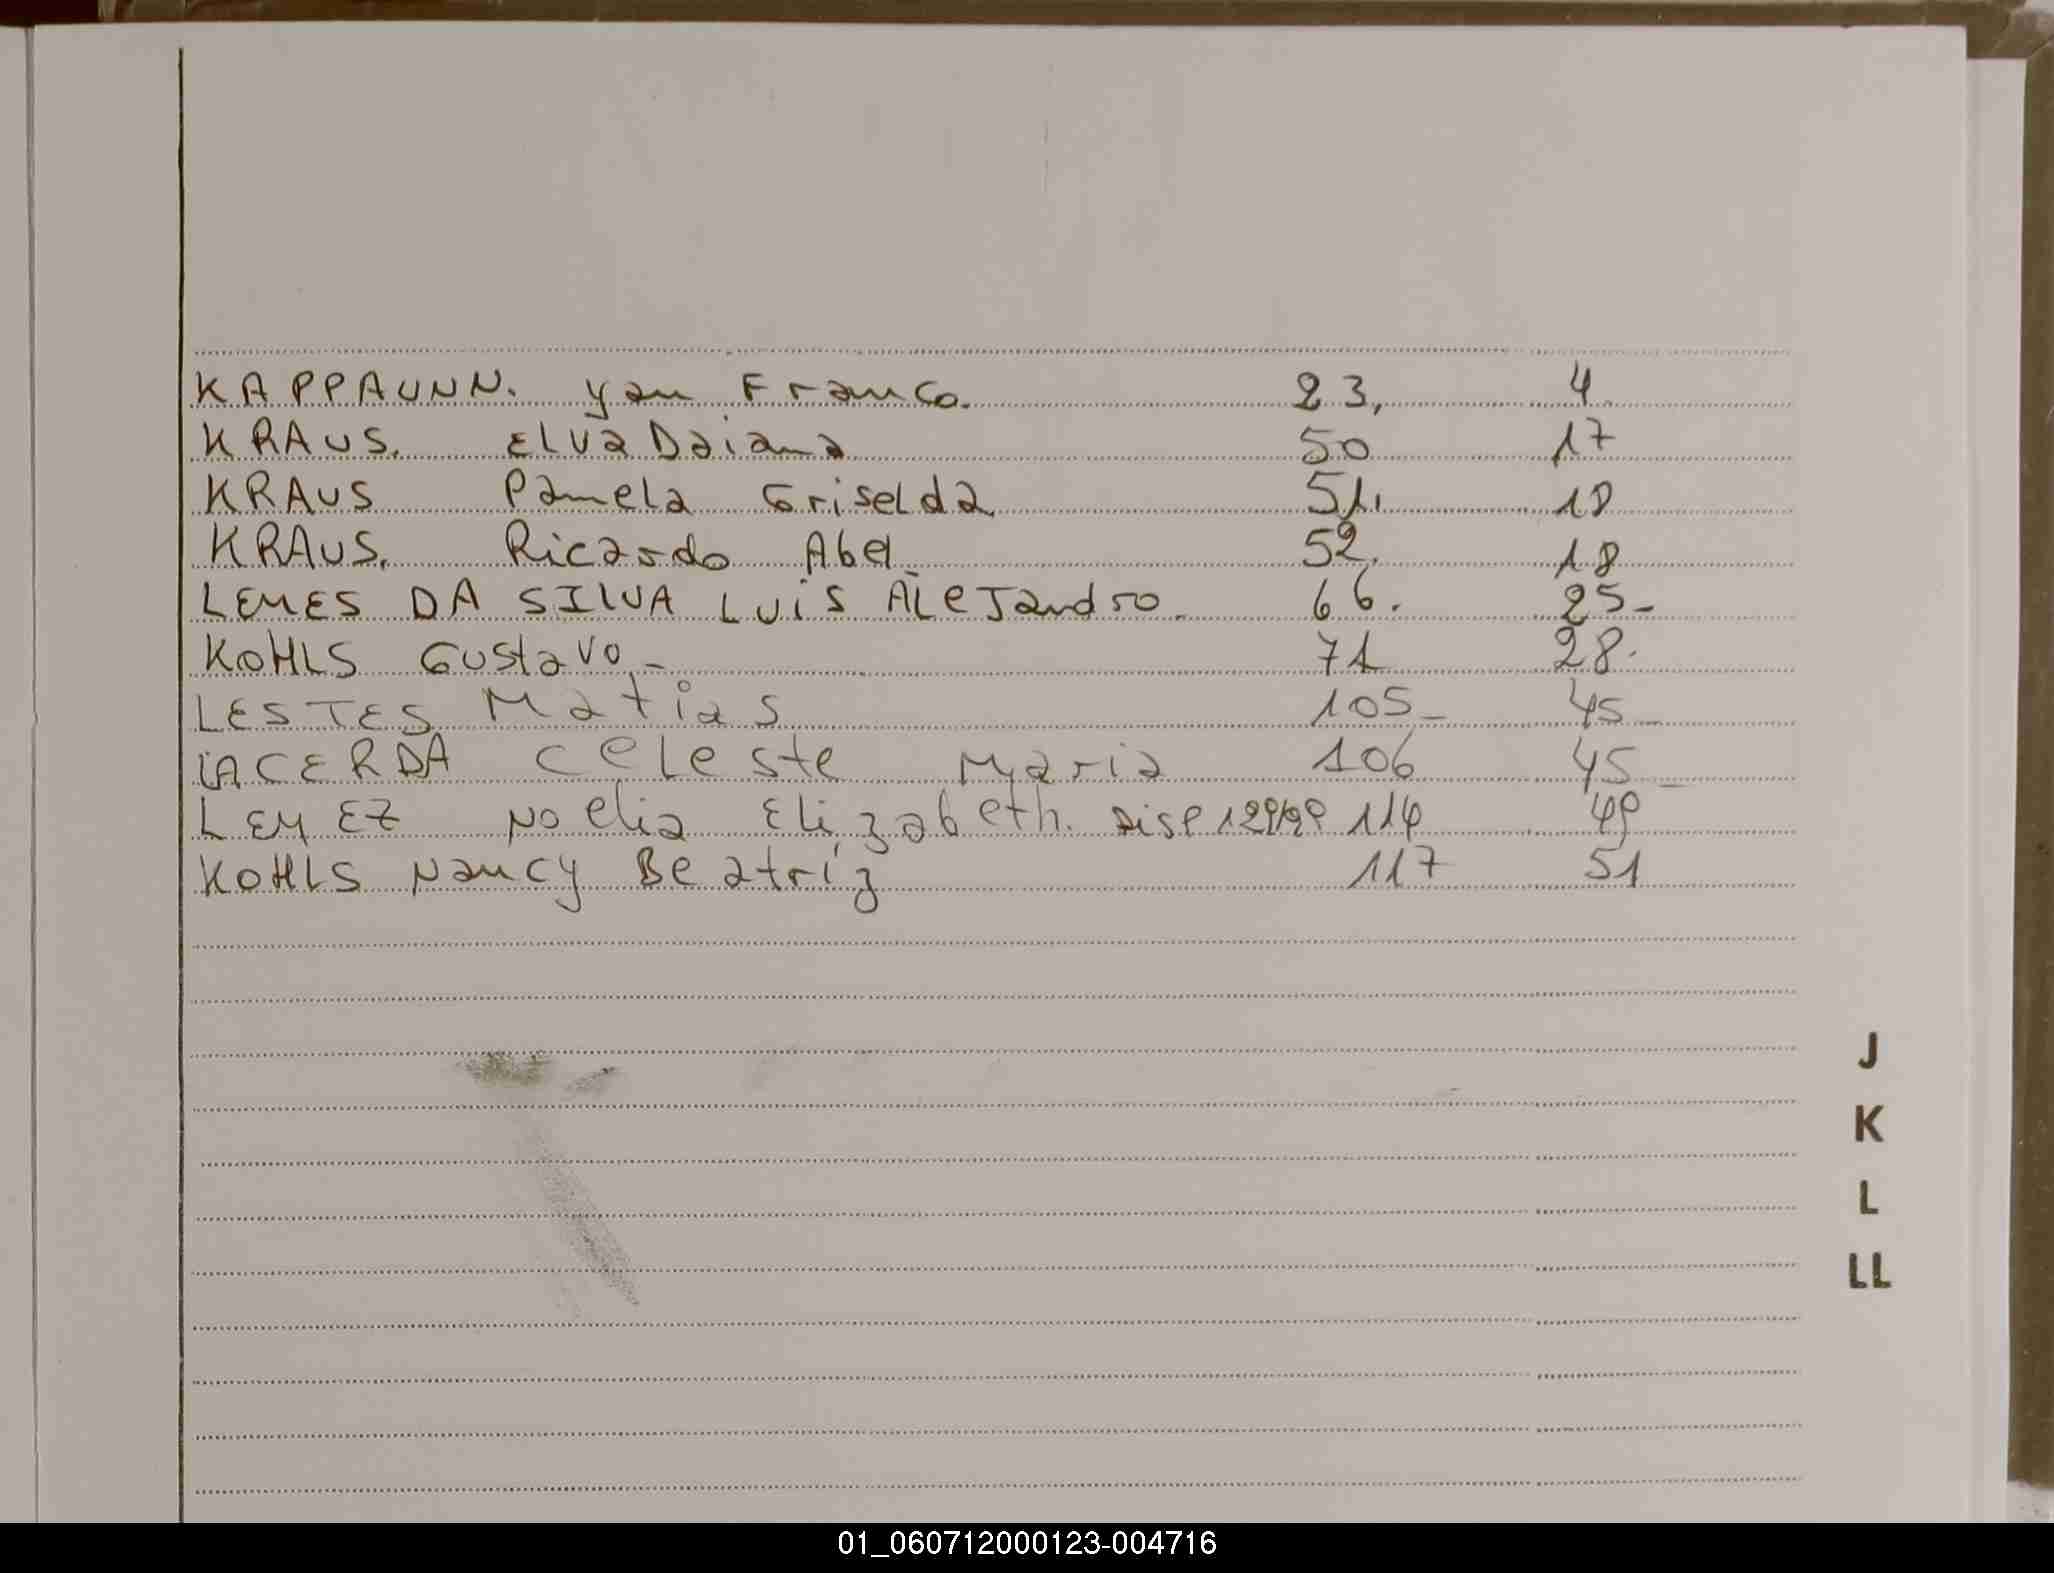 KAPPAUNN. Yan Franco. 23, 4.
KRAUS. Elva Daiana 50 17
KRAUS Pamela Griselda 51, 18
KRAUS. Ricardo Abel 52. 18
LEMES DA SILVA LUIS ALEJandro. 66. 25-
KOHLS Gustavo - 71 28.
LESTES Matias 105- 45-
LACERDA Celeste Maria 106 45-
LEMEZ Noelia Elizabeth. Disp 114 49
KOHLS Nancy Beatriz 117 51
J
K
L
LL
01_060712000123-004716